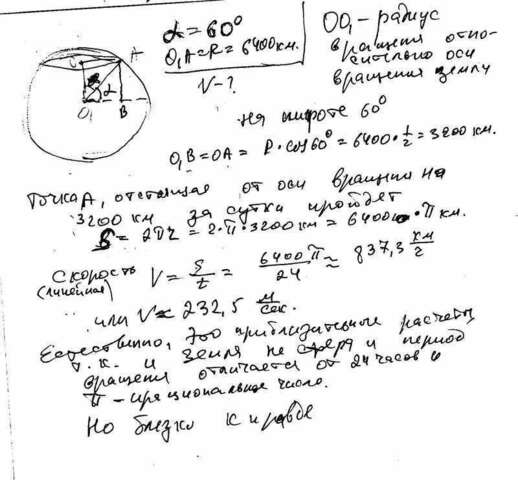 α = 60°
O₁A = R = 6400 км.
V - ?
OO₁ - радиус
вращения отно-
сительно оси
вращения земли
O A
O₁ α B
на широте 60°
O₁B = OA = R · cos 60° = 6400 · 1/2 = 3200 км.
Точка A, отстоящая от оси вращения на
3200 км за сутки пройдет
S = 2πr = 2·π·3200 км = 6400·π км.
Скорость V = S/t = 6400π/24 ≈ 837,3 км/г
(линейная)
или V ≈ 232,5 м/сек.
Естественно, это приблизительные расчеты
т.к. и земля не сфера и период
вращения отличается от 24 часов и
π - иррациональное число.
Но близко к правде